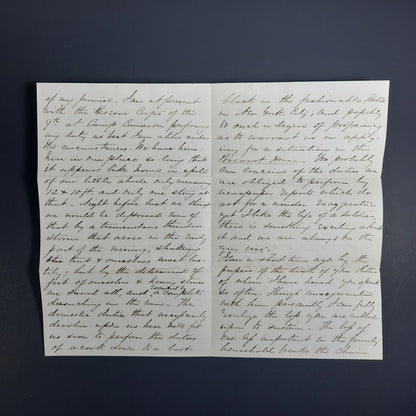 of my promise. I am at present
with the Reserve Corps of the
9th at Camp Cameron performing
my duty as best I am able under
the circumstances. We have been
here in one place so long that
it appears like home in spite
of our little abode measuring
12 x 10 ft and only one story at
that. Night before last we
we would be deprived even of
that by a tremendous thunder
storm that arose in the early
part of the evening, shaking
the tent & ourselves most
but by the determined
of ourselves & heavy stones
we saved all, and a complete
drenching in the rain. The
domestic duties that necessarily
devolve upon us here will fit
us soon to perform the duties
of a cook down to a boot
black in the fashionable Hotels
in New York City, and possibly
to such a degree of proficiency
as to warrant us in apply-
ing for a situation in the
House. You probably
are conscious of the duties we
are obliged to perform
newspaper report which do
not for a wonder exaggerate
yet I like the life of a soldier,
there is something exciting about
it and we are always on the
qui vive.
I saw a short time ago by the
papers of the death of your sister
of whom I have heard you speak
so often. Though unacquainted
with her personally I can fully
realize the loss you are called
upon to sustain. The loss of
one of importance in the family
household breaks the chain